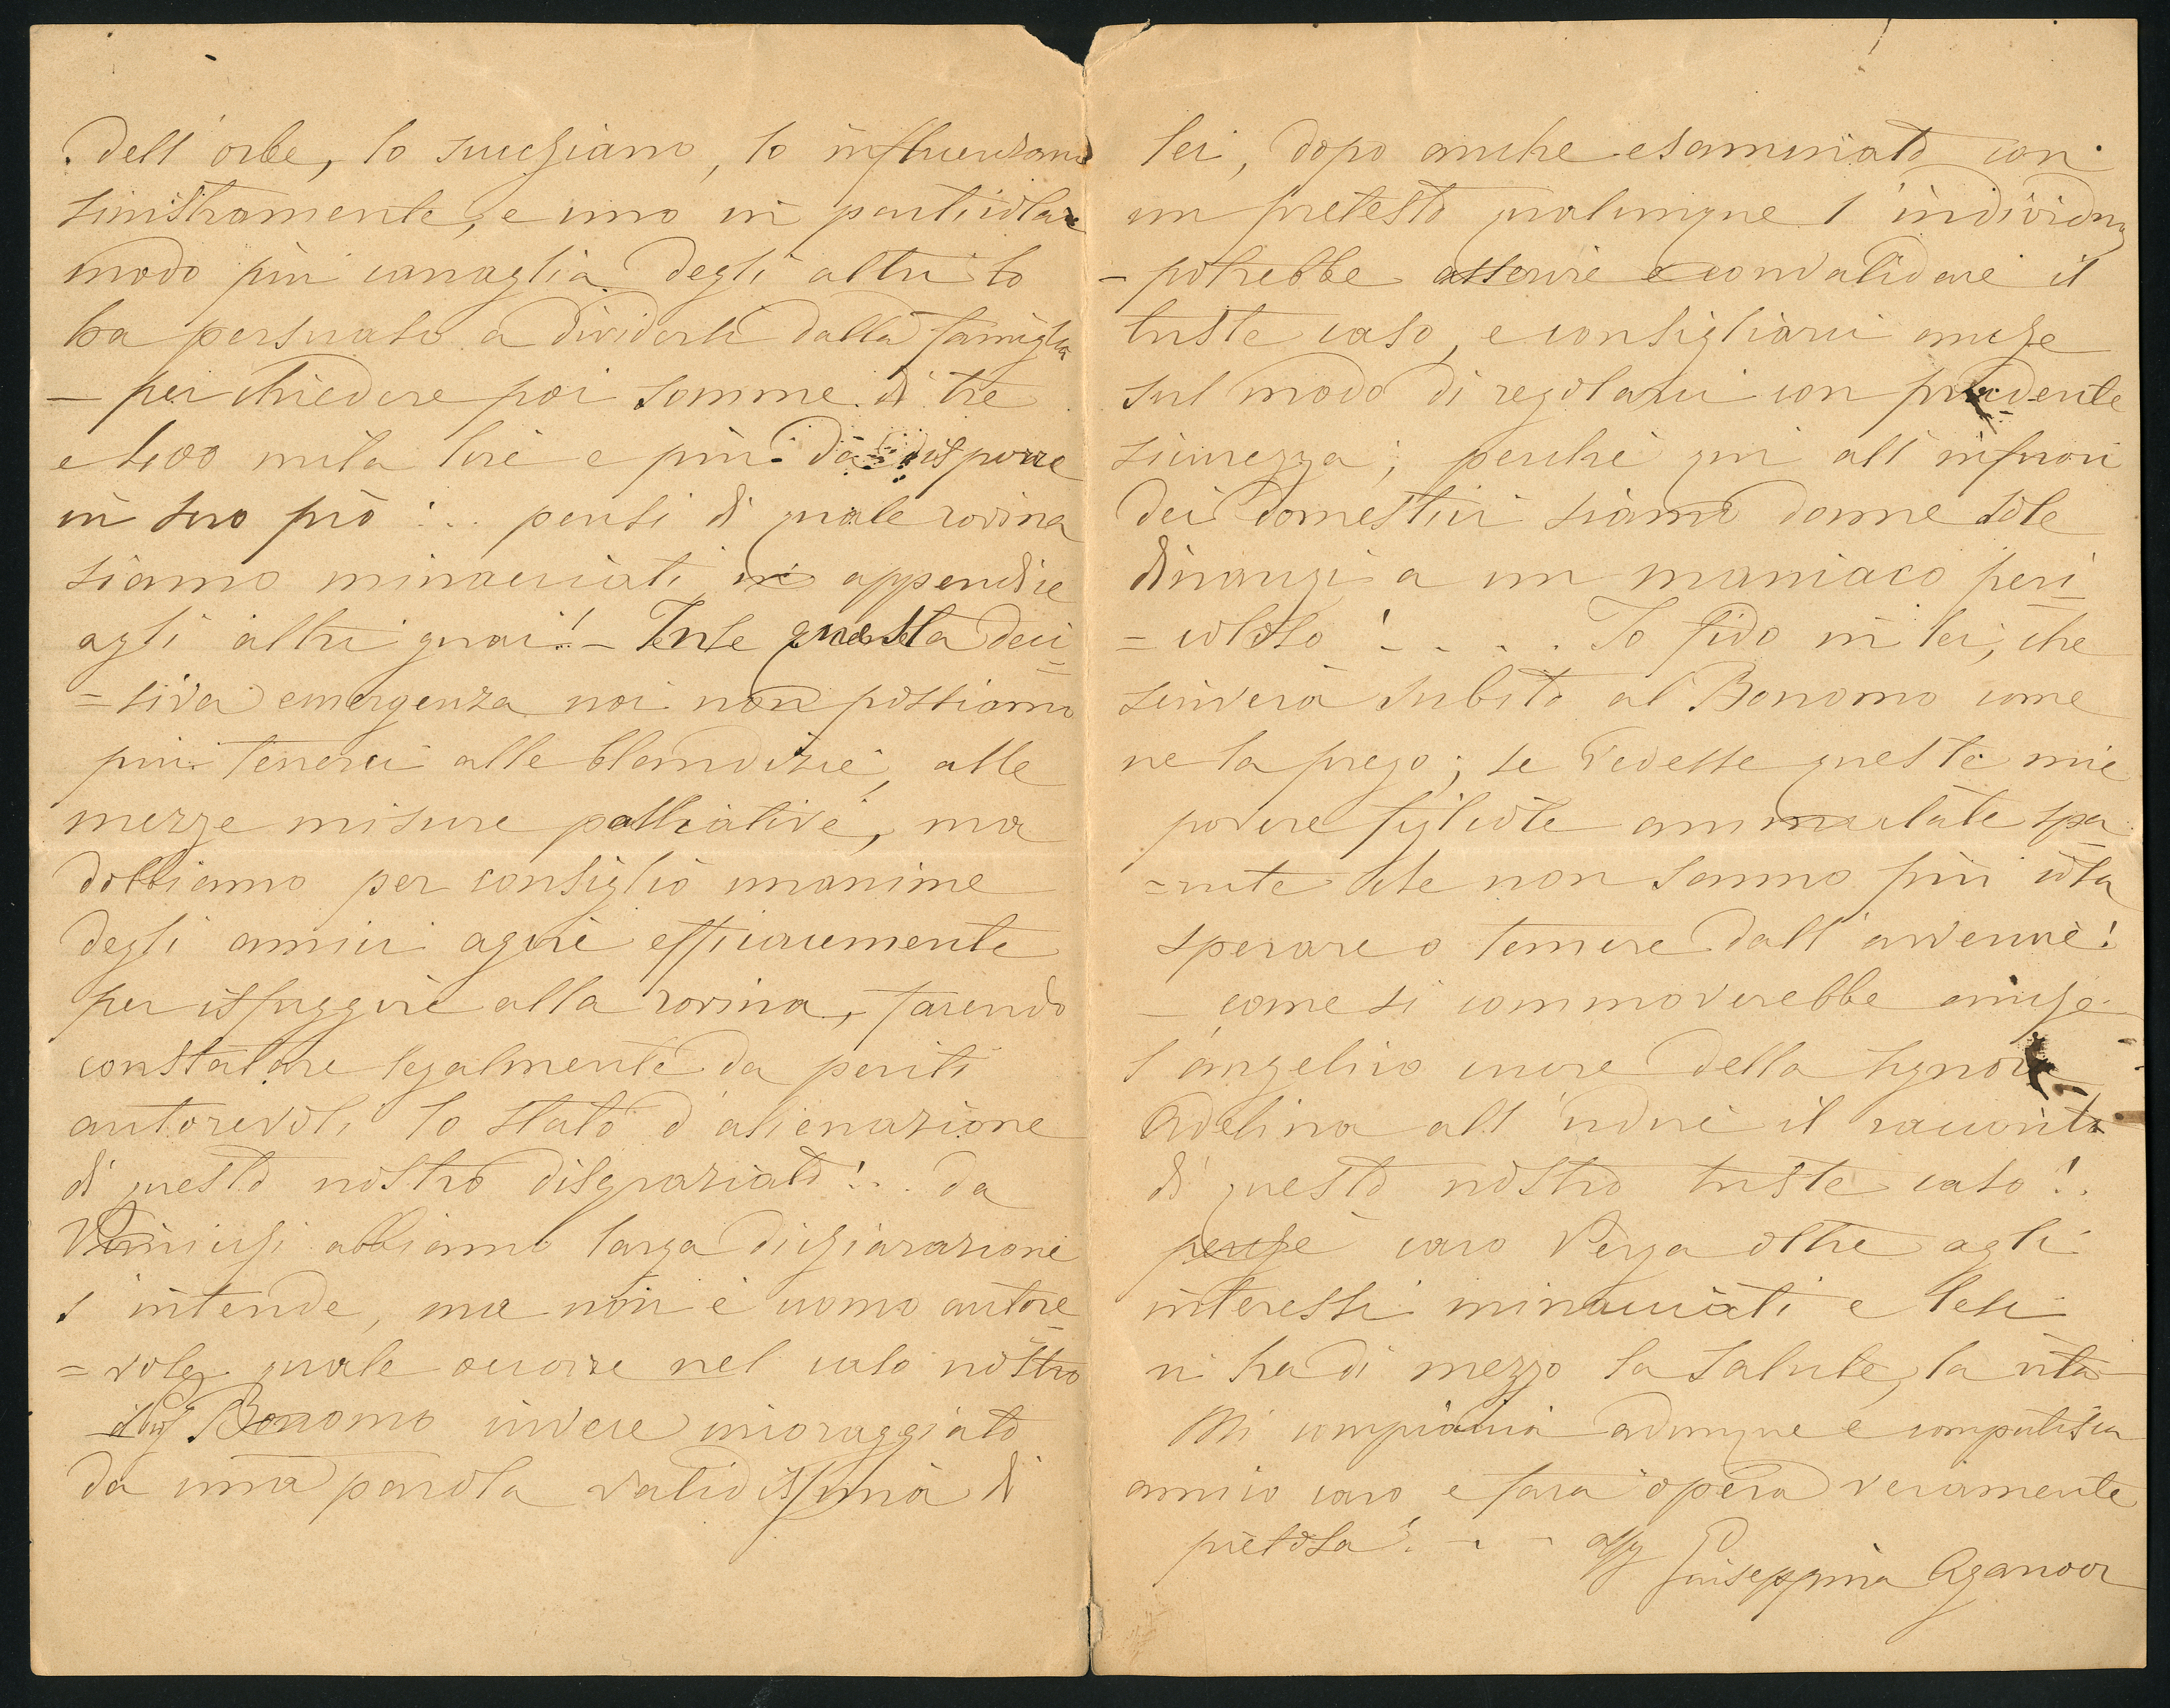 dell'orbe, lo succhiano, lo influenzano
sinistramente, e uno in particolar
modo più canaglia degli altri lo
ha persuaso a dividersi dalla famiglia
— per chiedere poi somme di tre
e 400 mila lire e più da disporre
in suo prò!.. pensi di quale rovina
siamo minacciati in appendice
agli altri guai!.— Tale questa deci
=siva emergenza noi non possiamo
più tenerci alle blandizie, alle
mezze misure palliative, ma
dobbiamo per consiglio unanime
degli amici agire efficacemente
per isfuggire alla rovina, facendo
constatare legalmente da periti
autorevoli lo stato d'alienazione
di questo nostro disgraziato!.. da
abbiamo larga dichiarazione
s'intende, ma non è uomo autore
=vole quale occorre nel caso nostro
Bonomo invece incoraggiato
da una parola validissima di
lei, dopo anche esaminato con
un pretesto qualunque l'individuo
– potrebbe asserire e convalidare il
triste caso, e consigliarci anche
sul modo di regolarci con prudente
sicurezza; perchè qui all'infuori
dei domestici siamo donne sole
dinanzi a un maniaco peri
=coloso!.... Io fido in lei, che
scriverà subito al Bonomo come
ne la prego; se vedesse queste mie
povere figliole ammutolite spa
che non sanno più cosa
sperare o temere dall'avvenire!
— come si commoverebbe anche
l'angelico cuore della Signora
Adelina all'udire il racconto
di questo nostro triste caso!.
perchè caro Verga oltre agli
interessi minacciati e lesi
vi ha di mezzo la salute, la vita
Mi compiaccia adunque e compatisca
amico caro e farà opera veramente
pietosa!... aff
Giuseppina Aganoor